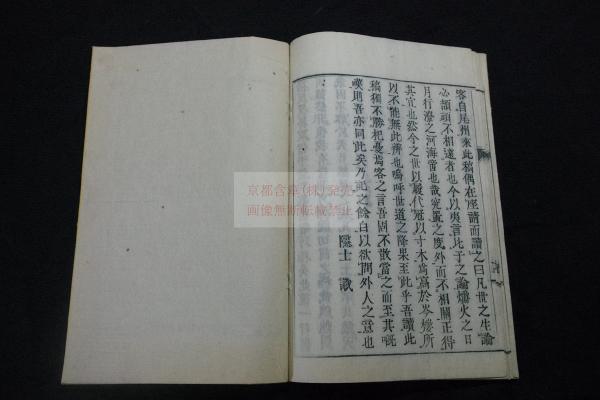 客自尾州來此稿偶在座請而讀之曰凡世之生論
必頡頏不相遠者也今以爽言比子之論爝火之日
月行潦之河海當也哉寘置之度外而不相關正得
其宜也然今之世以冠代冠以寸木爲高於岑樓所
以不能無此辨也嗚呼世道之降果至此乎吾讀此
稿獨不勝杞憂焉客之言吾固不敢當之而至其嘅
嘆則吾亦同此矣乃記之餘白以欲問外人之意也
隱士識
京都含章(株)発売
画像無断転載禁止